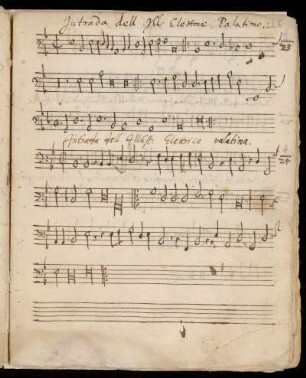 Intrada dell Ill: Elettore Palatino.
23
Intrada dell Illust: Elettrice palatina.
24